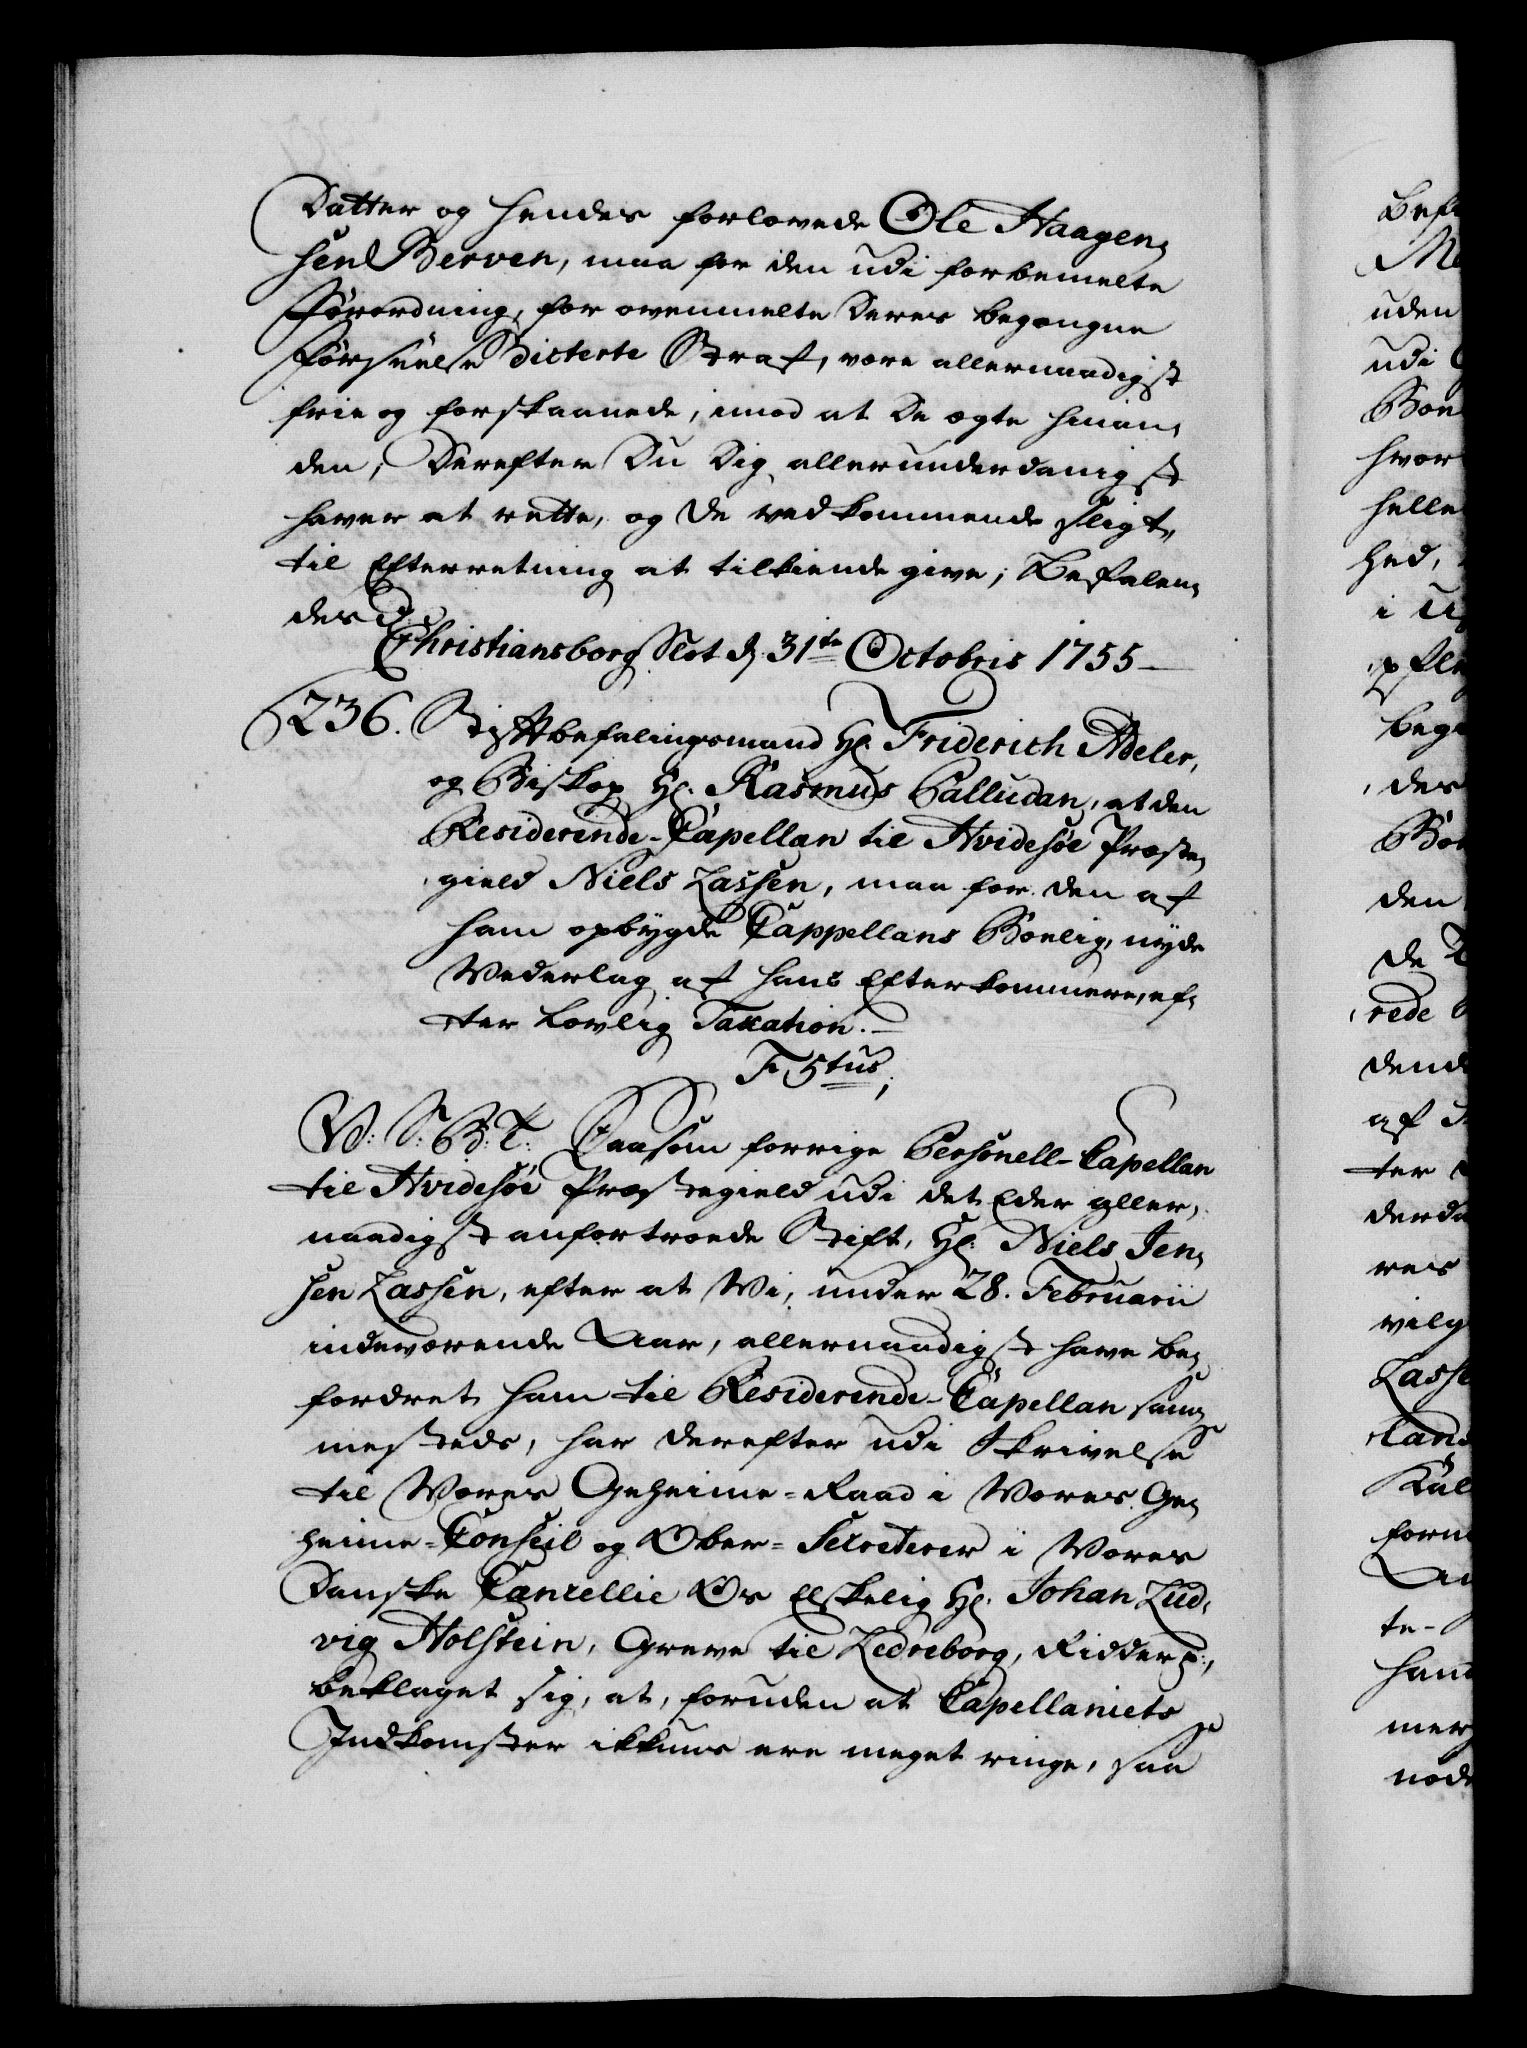 Datter og hendes forlovede Ole Haagen,
sen Berven, maa for den udi forbemelte
Forordning, for ovenmelte Deres begangne
Forseelse Dicterte Straf, være allernaadigst
frie og forskaanede, imod at De ægte hinan,
den; Derefter Du Dig allerunderdanigst
haver at rette, og De vedkommende sligt,
til Efterretning at tilkiende give; Befalen,
des
Christiansborg Slot d. 31te Octobris 1755
236. Stiftbefalingsmand Hr. Friderich Adeler,
og Biskop Hr. Rasmus Palludan, at den
Residerende-Capellan til Hvidesøe Præste,
gield Niels Lassen, maa for den af
ham opbygde Cappellans Boelig, nyde
Vederlag af hans Efterkommere, ef,
ter Lovlig Taxation.
F 5tus,
V: S: B: T: Saasom forrige Personell-Capellan
til Hvidesøe Præstegield udi det Eder aller,
naadigst anfortroede Stift, Hr. Niels Jen,
sen Lassen, efter at Wi, under 28. Februarii
indeværende Aar, allernaadigst have be,
fordret ham til Residerende-Capellan sam,
mesteds, har derefter udi Skrivelse
til Vores Geheime-Raad i Vores Ge,
heime-Conseil og Ober-Secreterer i Vores
Danske Cancellie Os Elskelig Hr. Johan Lud,
vig Holstein, Greve til Ledreborg, Ridder p:,
beklaget sig, at, foruden at Capellaniets
Indkomster ikkuns ere meget ringe, saa
uden
udi
hvor
helle
hed,
den
rede